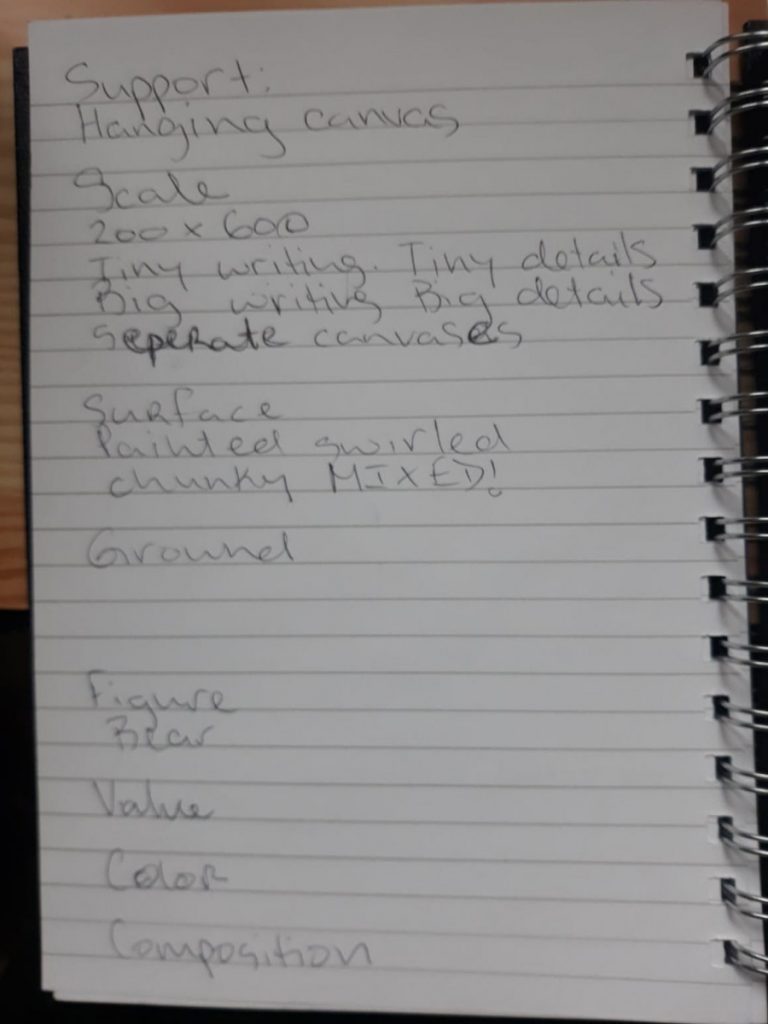 Support:
Hanging canvas
Scale
200 x 600
Tiny writing. Tiny details
Big writing Big details
Seperate canvases
Surface
Painted swirled
chunky MIXED!
Ground
Figure
Bear
Value
Color
Composition